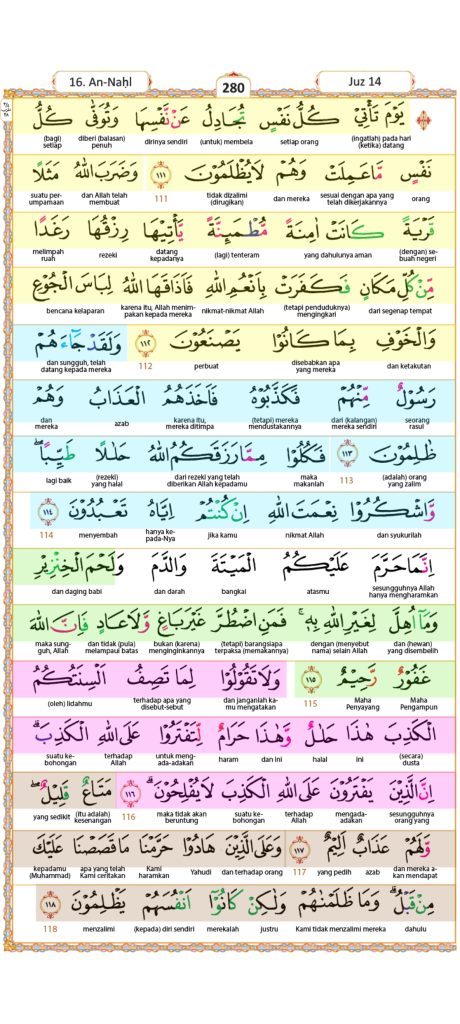 16. An-Naḥl
280
Juz 14
يَوْمَ تَأْتِيْ كُلُّ نَفْسٍ تُجَادِلُ عَنْ نَّفْسِهَا وَتُوَفّٰى كُلُّ
(ingatlah) pada hari (ketika) datang setiap orang (untuk) membela dirinya sendiri diberi (balasan) penuh (bagi) setiap
نَفْسٍ مَّا عَمِلَتْ وَهُمْ لَا يُظْلَمُوْنَ ۝١١١ وَضَرَبَ اللّٰهُ مَثَلًا
orang sesuai dengan apa yang telah dikerjakannya dan mereka tidak dizalimi (dirugikan) 111 dan Allah telah membuat suatu per-umpamaan
قَرْيَةً كَانَتْ اٰمِنَةً مُّطْمَىِٕنَّةً يَّأْتِيْهَا رِزْقُهَا رَغَدًا
(dengan) se-buah negeri yang dahulunya aman (lagi) tenteram datang kepadanya rezeki melimpah ruah
مِّنْ كُلِّ مَكَانٍ فَكَفَرَتْ بِاَنْعُمِ اللّٰهِ فَاَذَاقَهَا اللّٰهُ لِبَاسَ الْجُوْعِ
dari segenap tempat (tetapi penduduknya) mengingkari nikmat-nikmat Allah karena itu, Allah menim-pakan kepada mereka bencana kelaparan
وَالْخَوْفِ بِمَا كَانُوْا يَصْنَعُوْنَ ۝١١٢ وَلَقَدْ جَاۤءَهُمْ
dan ketakutan disebabkan apa yang mereka perbuat 112 dan sungguh, telah datang kepada mereka
رَسُوْلٌ مِّنْهُمْ فَكَذَّبُوْهُ فَاَخَذَهُمُ الْعَذَابُ وَهُمْ
seorang rasul dari (kalangan) mereka sendiri (tetapi) mereka mendustakannya karena itu, mereka ditimpa azab dan mereka
ظٰلِمُوْنَ ۝١١٣ فَكُلُوْا مِمَّا رَزَقَكُمُ اللّٰهُ حَلٰلًا طَيِّبًاۖ
(adalah) orang yang zalim 113 maka makanlah dari rezeki yang telah diberikan Allah kepadamu (rezeki) yang halal lagi baik
وَّاشْكُرُوْا نِعْمَتَ اللّٰهِ اِنْ كُنْتُمْ اِيَّاهُ تَعْبُدُوْنَ ۝١١٤
dan syukurilah nikmat Allah jika kamu hanya ke-pada-Nya menyembah 114
اِنَّمَا حَرَّمَ عَلَيْكُمُ الْمَيْتَةَ وَالدَّمَ وَلَحْمَ الْخِنْزِيْرِ
sesungguhnya Allah hanya mengharamkan atasmu bangkai dan darah dan daging babi
وَمَآ اُهِلَّ لِغَيْرِ اللّٰهِ بِهٖۚ فَمَنِ اضْطُرَّ غَيْرَ بَاغٍ وَّلَا عَادٍ فَاِنَّ اللّٰهَ
dan (hewan) yang disembelih dengan (menyebut nama) selain Allah (tetapi) barangsiapa terpaksa (memakannya) bukan (karena) menginginkannya dan tidak (pula) melampaui batas maka sung-guh, Allah
غَفُوْرٌ رَّحِيْمٌ ۝١١٥ وَلَا تَقُوْلُوْا لِمَا تَصِفُ اَلْسِنَتُكُمُ
Maha Pengampun Maha Penyayang 115 dan janganlah ka-mu mengatakan terhadap apa yang disebut-sebut (oleh) lidahmu
الْكَذِبَ هٰذَا حَلٰلٌ وَّهٰذَا حَرَامٌ لِّتَفْتَرُوْا عَلَى اللّٰهِ الْكَذِبَۗ
(secara) dusta ini halal dan ini haram untuk meng-ada-adakan terhadap Allah suatu ke-bohongan
اِنَّ الَّذِيْنَ يَفْتَرُوْنَ عَلَى اللّٰهِ الْكَذِبَ لَا يُفْلِحُوْنَۗ ۝١١٦ مَتَاعٌ قَلِيْلٌۖ
sesungguhnya orang yang mengada-adakan terhadap Allah suatu ke-bohongan maka tidak akan beruntung 116 (itu adalah) kesenangan yang sedikit
وَّلَهُمْ عَذَابٌ اَلِيْمٌ ۝١١٧ وَعَلَى الَّذِيْنَ هَادُوْا حَرَّمْنَا مَا قَصَصْنَا عَلَيْكَ
dan mereka a-kan mendapat azab yang pedih 117 dan terhadap orang Yahudi Kami haramkan apa yang telah Kami ceritakan kepadamu (Muhammad)
مِنْ قَبْلُۗ وَمَا ظَلَمْنٰهُمْ وَلٰكِنْ كَانُوْٓا اَنْفُسَهُمْ يَظْلِمُوْنَ ۝١١٨
dahulu Kami tidak menzalimi mereka justru merekalah (kepada) diri sendiri menzalimi 118